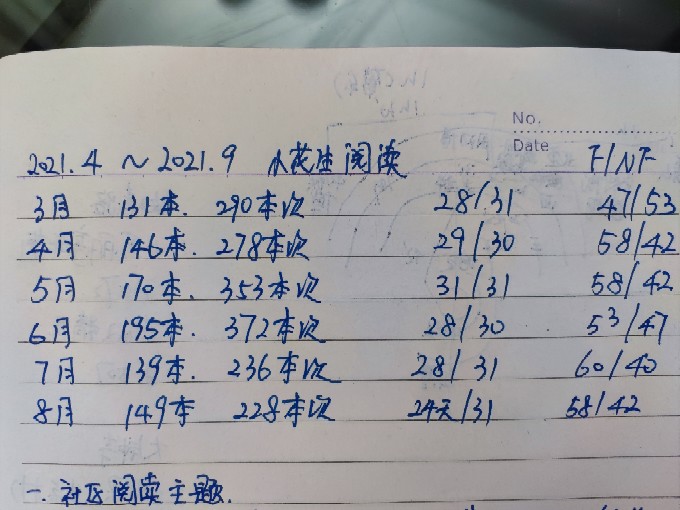 No.
Date
2021.4 ~ 2021.9 小花生阅读 F/NF
3月 131本. 290本次 28/31 47/53
4月 146本. 278本次 29/30 58/42
5月 170本. 353本次 31/31 58/42
6月 195本. 372本次 28/30 53/47
7月 139本. 236本次 28/31 60/40
8月 149本 228本次 24天/31 58/42
一. 社区阅读主题.